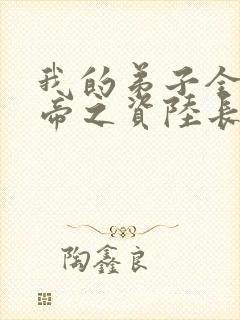 我的弟子全
帝之资陸長
陶鑫良